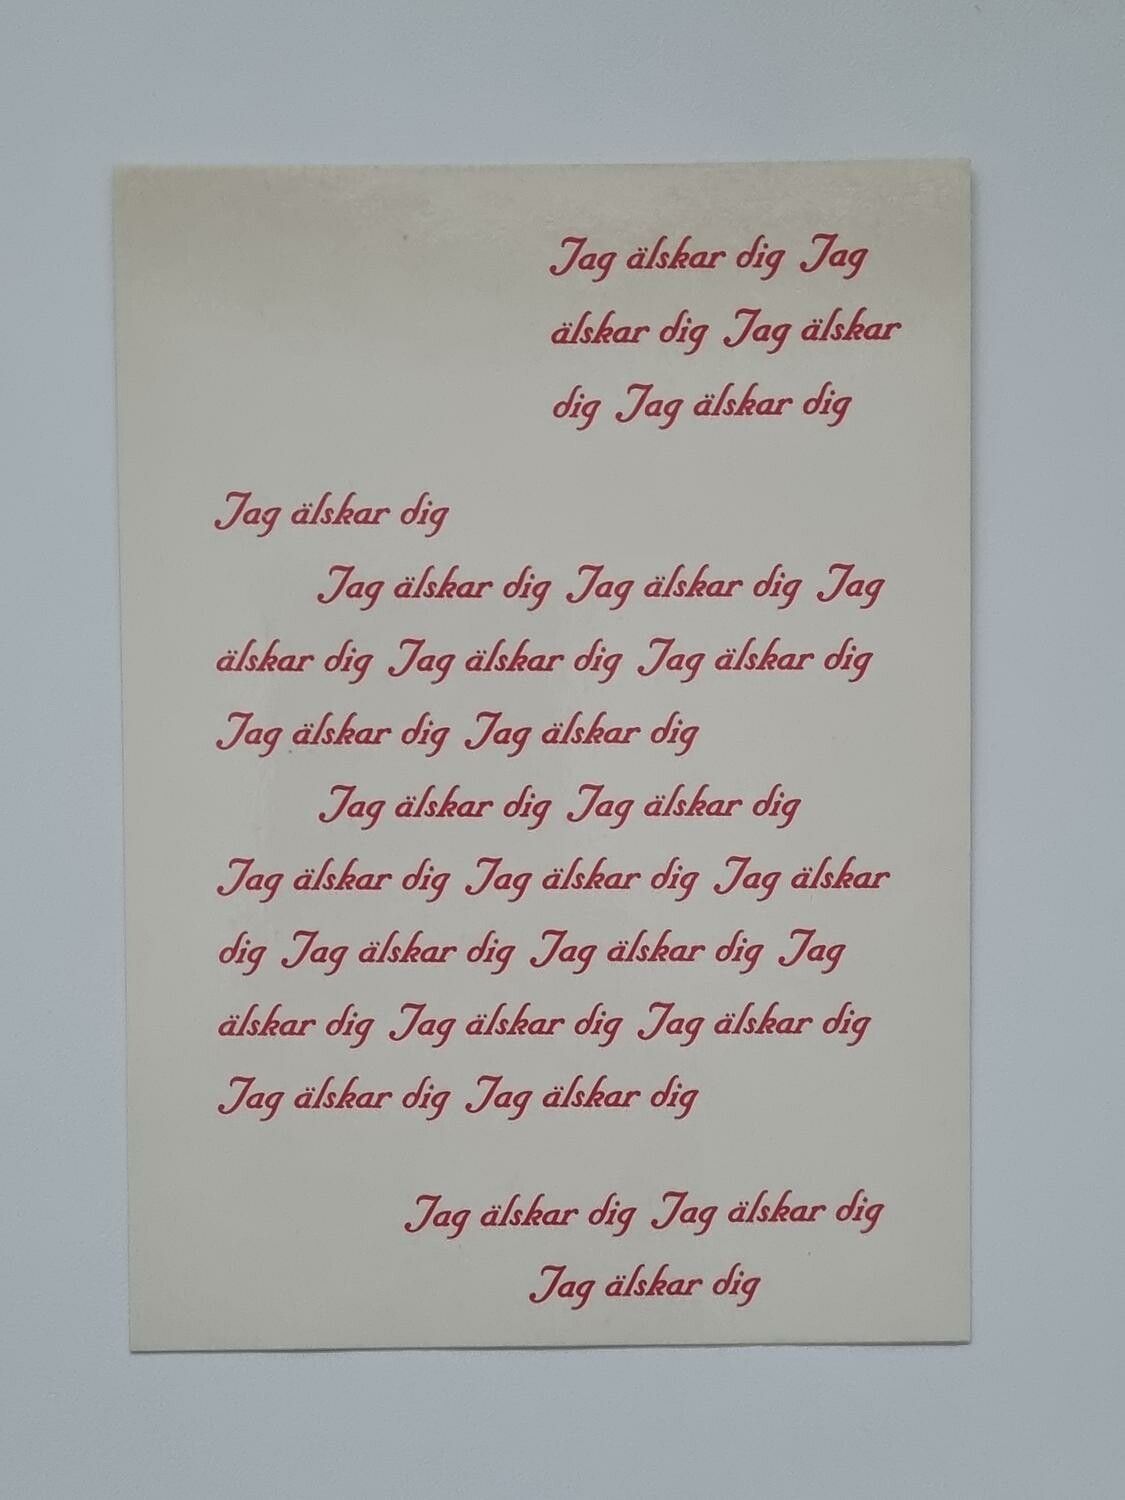 Jag älskar dig Jag
älskar dig Jag älskar
dig Jag älskar dig
Jag älskar dig
Jag älskar dig Jag älskar dig Jag
älskar dig Jag älskar dig Jag älskar dig
Jag älskar dig Jag älskar dig
Jag älskar dig Jag älskar dig
Jag älskar dig Jag älskar dig Jag älskar
dig Jag älskar dig Jag älskar dig Jag
älskar dig Jag älskar dig Jag älskar dig
Jag älskar dig Jag älskar dig
Jag älskar dig Jag älskar dig
Jag älskar dig